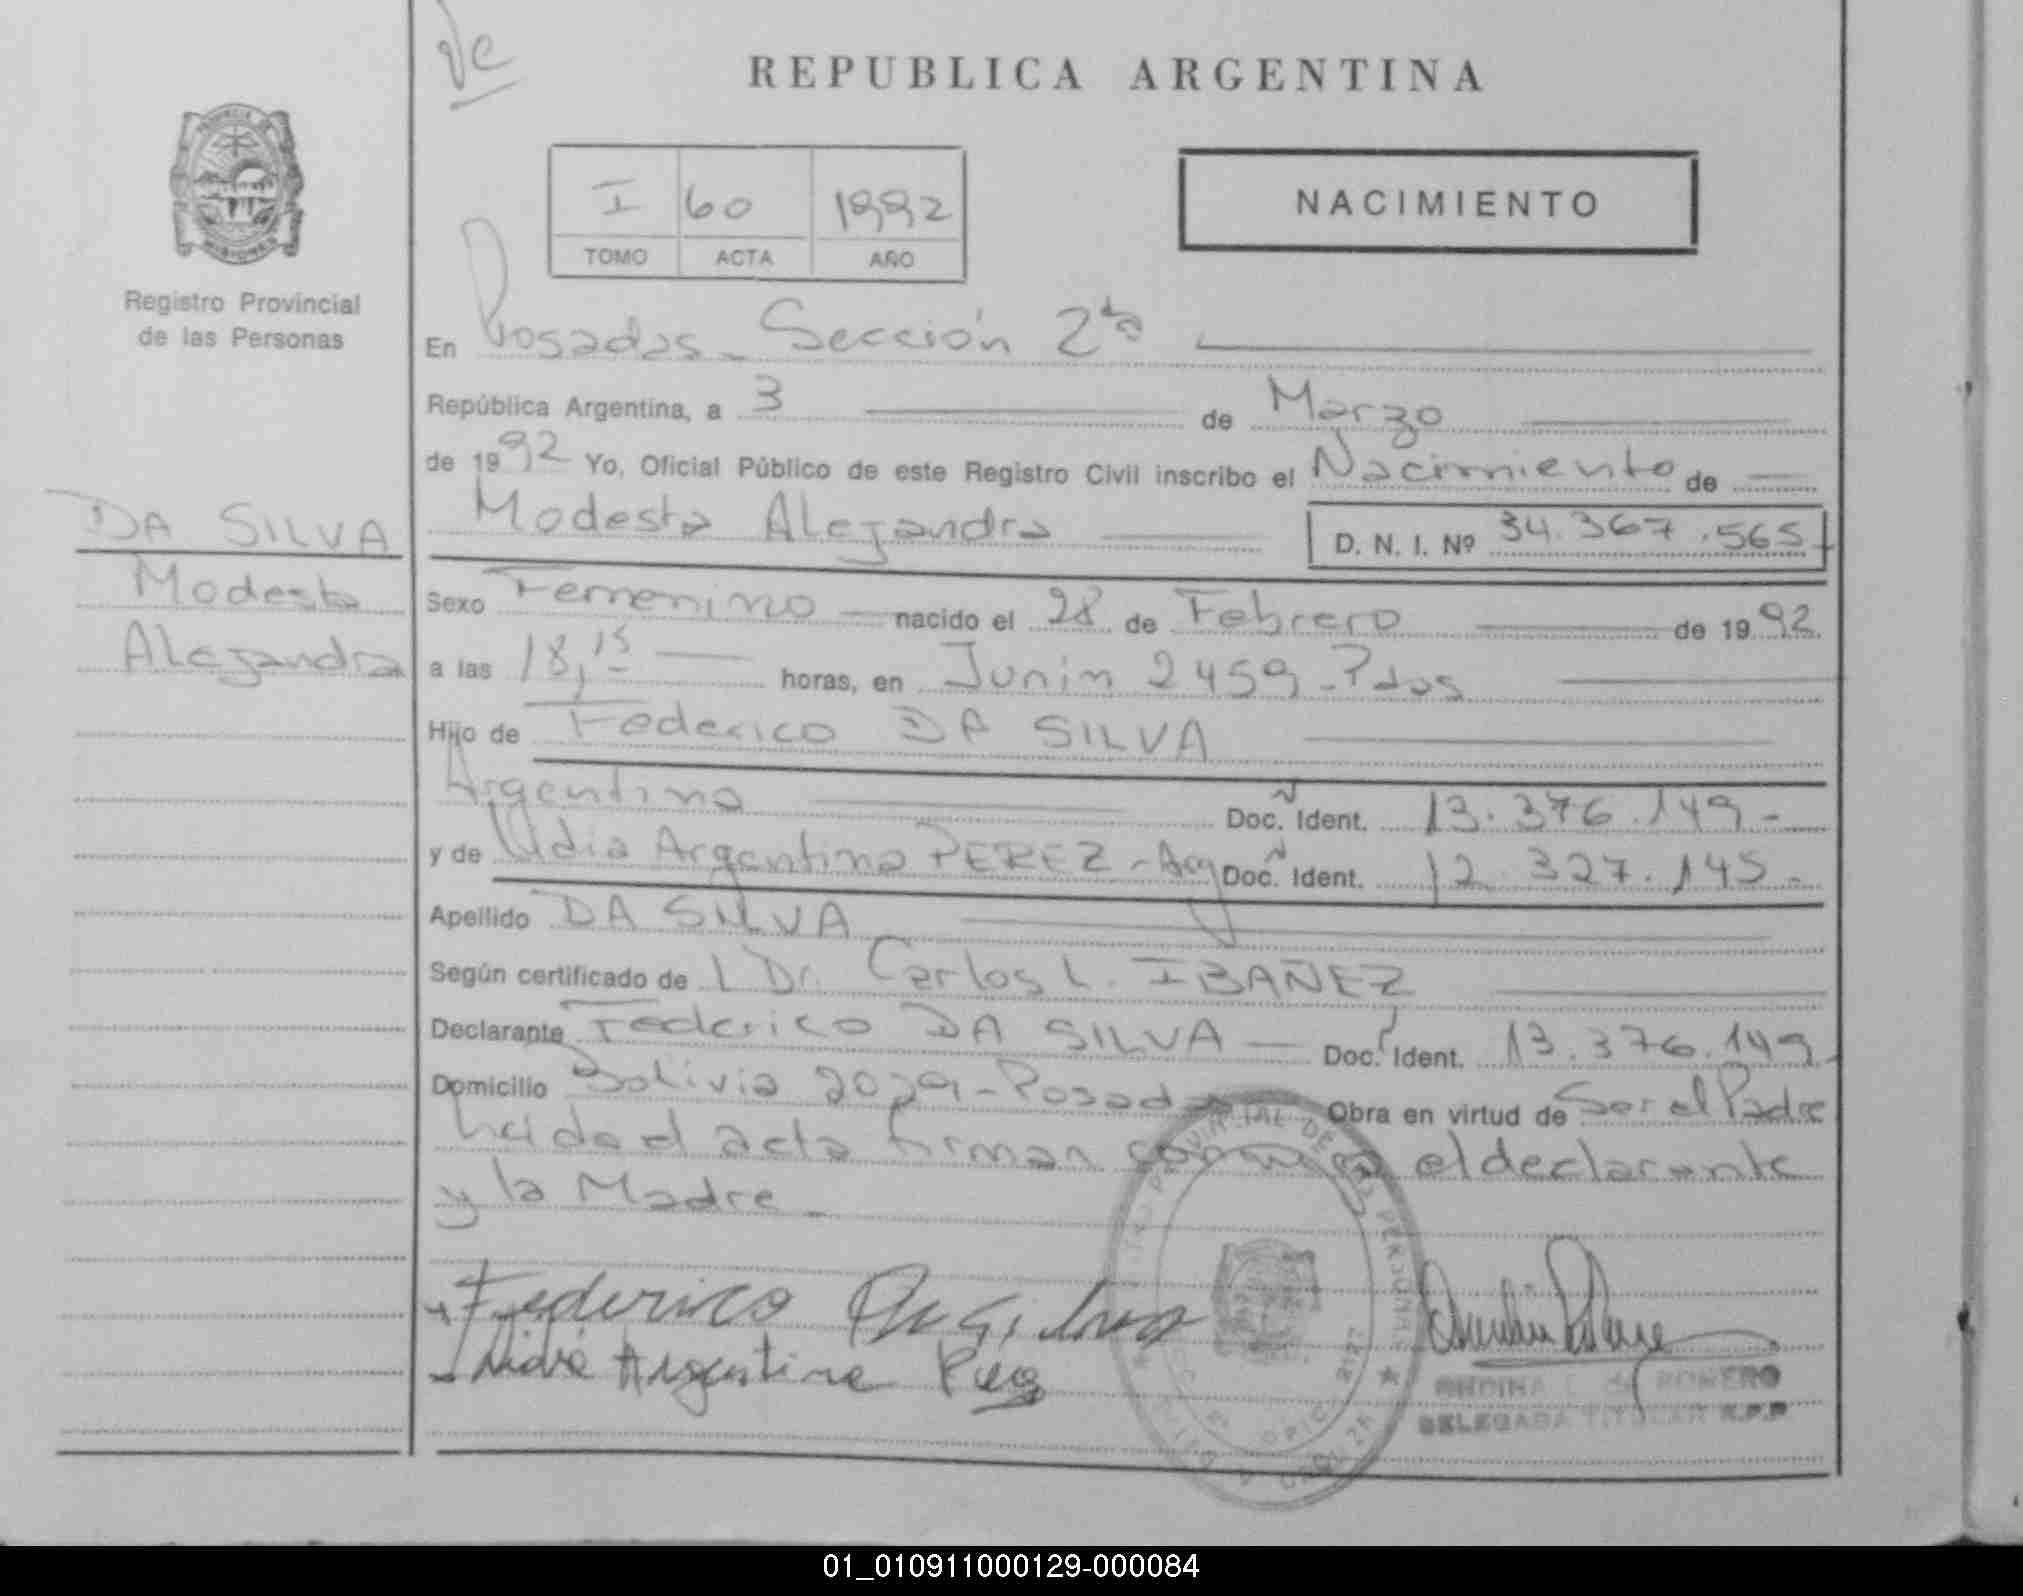 Ve
REPUBLICA ARGENTINA
I 60 1992
TOMO ACTA AÑO
NACIMIENTO
PROVINCIA DE MISIONES
Registro Provincial
de las Personas
DA SILVA
Modesta
Alejandra
En Posadas - Sección 2da
República Argentina, a 3 de Marzo
de 1992 Yo, Oficial Público de este Registro Civil inscribo el Nacimiento de
Modesta Alejandra D. N. I. Nº 34.367.565
Sexo Femenino nacido el 28 de Febrero de 1992
a las 18,15 horas, en Junín 2459 - Pdas
Hijo de Federico DA SILVA
Argentino Doc. Ident. 13.376.149 -
y de Lidia Argentina PEREZ - Arg Doc. Ident. 12.327.145 -
Apellido DA SILVA
Según certificado de l Dr. Carlos L. IBAÑEZ
Declarante Federico DA SILVA Doc. Ident. 13.376.149
Domicilio Bolivia 2029 - Posadas Obra en virtud de Ser el Padre
Leida el acta firman conmigo el declarante
y la Madre -
Federico Da Silva
Lidia Argentina Perez
ROMERO
DELEGADA TITULAR R.P.P
01_010911000129-000084